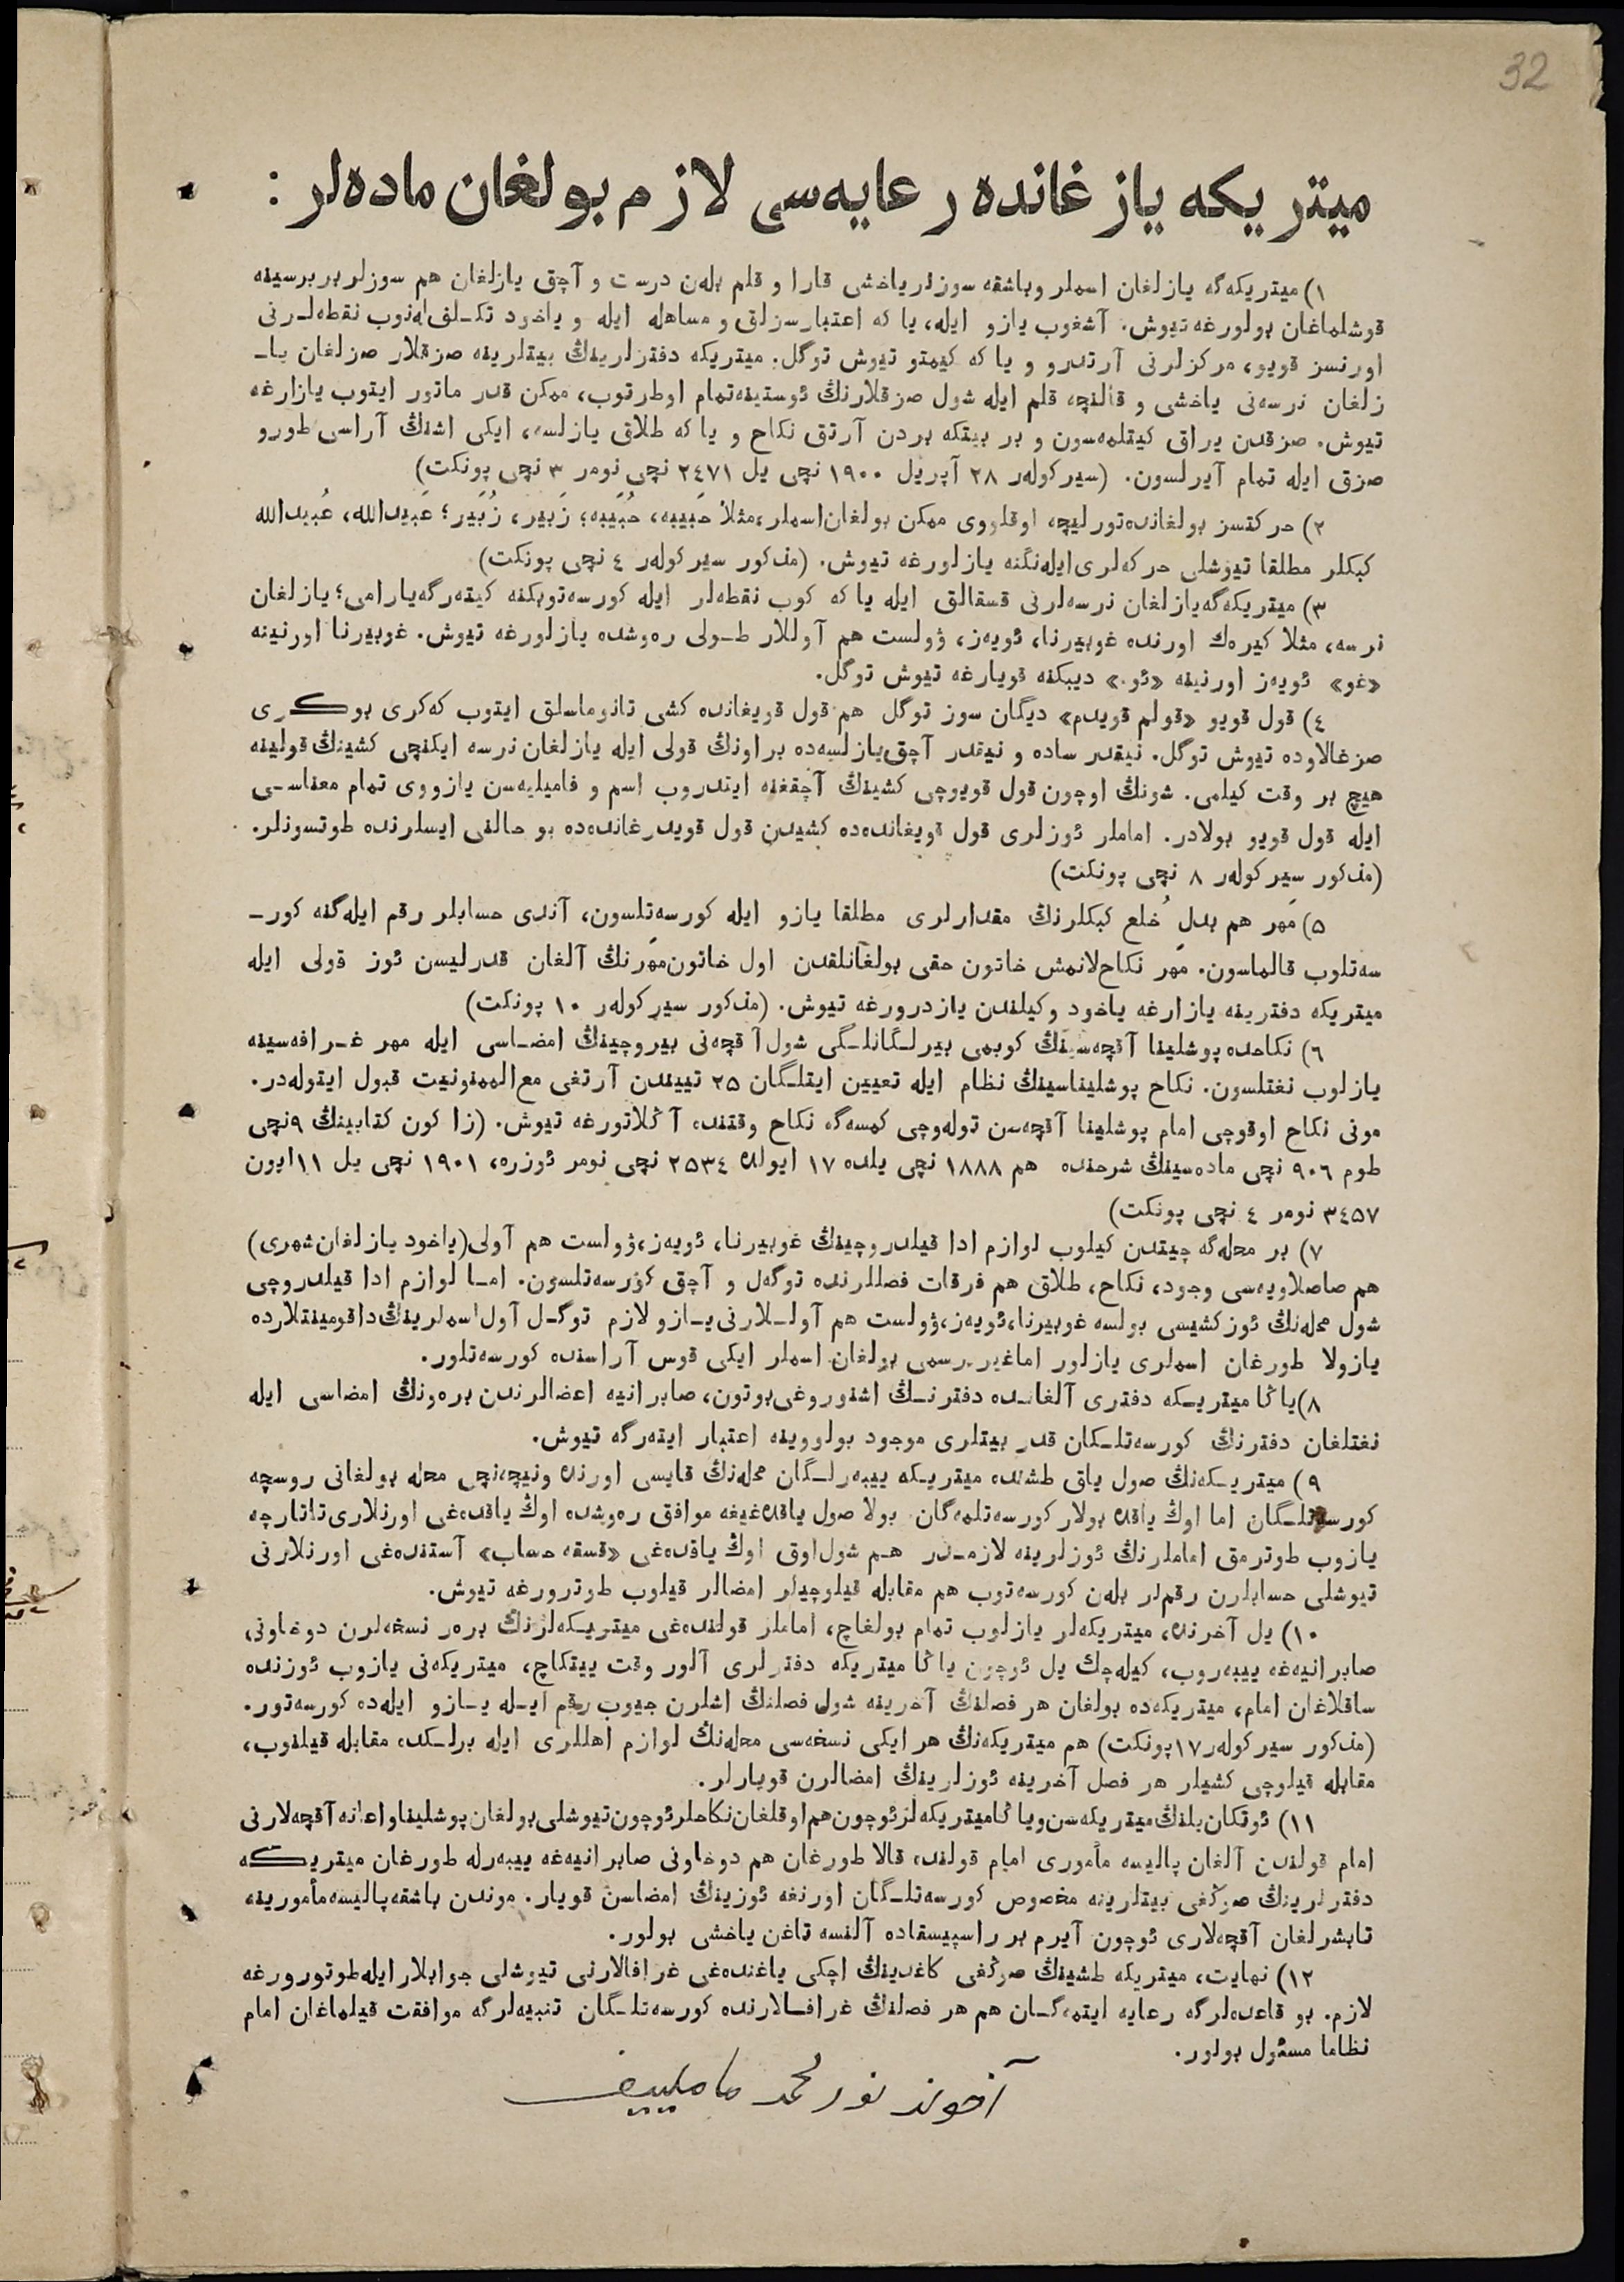 32
میتریكه یازغانده رعایه‌سی لازم بولغان ماده‌لر :
۱) میتریكه‌گه یازلغان اسملر وباشقه سوزلر یاخشی قارا و قلم بله‌ن درست و آچق یازلغان هم سوزلر بر برسینه
قوشلماغان بولورغه تیوش. آشغوب یازو ایله، یا كه اعتبارسزلق و مساهله ایله و یاخود تكلفله‌نوب نقطه‌لرنی
اورنسز قویو، مركزلرنی آرتدرو و یا كه كیمتو تیوش توگل. میتریكه دفترلرینڭ بیتلرینه صزقلار صزلغان یا-
زلغان نرسه‌نی یاخشی و قالنچه قلم ایله شول صزقلارنڭ ئوستینه‌تمام اوطرتوب، ممكن قدر ماتور ایتوب یازارغه
تیوش. صزقدن یراق كیتلمه‌سون و بر بیتكه بردن آرتق نكاح و یا كه طلاق یازلسه، ایكی اشنڭ آراسی طورو
صزق ایله تمام آیرلسون. (سیركوله‌ر ۲۸ آپریل ۱۹۰۰ نچی یل ۲٤۷۱ نچی نومر ۳ نچی پونكت)
۲) حركتسز بولغانده‌تورلیچه اوقلووی ممكن بولغان‌اسملر،مثلا حَبیبه، حُبَیبه؛ زَبیر، زُبَیر؛ عَبیدالله، عُبیدالله
كبكلر مطلقا تیوشلی حركه‌لری‌ایله‌نگنه یازلورغه تیوش. (مذكور سیركوله‌ر ٤ نچی پونكت)
۳) میتریكه‌گه‌یازلغان نرسه‌لرنی قسقالق ایله یا كه كوب نقطه‌لر ایله كورسه‌توبكنه كیته‌رگه‌یارامی؛ یازلغان
نرسه، مثلا كیره‌ك اورنده غوبیرنا، ئویه‌ز، ۋولست هم آوللار طولی ره‌وشده یازلورغه تیوش. غوبیرنا اورنینه
«غو» ئویه‌ز اورنینه «ئو.» دیبكنه قویارغه تیوش توگل.
٤) قول قویو «قولم قویدم» دیگان سوز توگل هم قول قویغانده كشی تانوماسلق ایتوب كه‌كری بوكری
صزغالاوده تیوش توگل. نیقدر ساده و نیقدر آچق‌یازلسه‌ده براونڭ قولی ایله یازلغان نرسه ایكنچی كشینڭ قولینه
هیچ بر وقت كیلمی. شونڭ اوچون قول قویوچی كشینڭ آچقغنه ایتدروب اسم و فامیلیه‌سن یازووی تمام معناسی
ایله قول قویو بولادر. اماملر ئوزلری قول قویغانده‌ده كشیدن قول قویدرغانده‌ده بو حالنی ایسلرنده طوتسونلر.
(مذكور سیركوله‌ر ۸ نچی پونكت)
۵) مَهر هم بدل خُلع كبكلرنڭ مقدارلری مطلقا یازو ایله كورسه‌تلسون، آندی حسابلر رقم ایله‌گنه كور-
سه‌تلوب قالماسون. مَهر نكاح‌لانمش خاتون حقی بولغانلقدن اول خاتون‌مَهرنڭ آلغان قدرلیسن ئوز قولی ایله
میتریكه دفترینه یازارغه یاخود وكیلندن یازدرورغه تیوش. (مذكور سیركوله‌ر ۱۰ پونكت)
٦) نكاحده پوشلینا آقچه‌سینڭ كوبمی بیرلگانلگی شول آقچه‌نی بیروچینڭ امضاسی ایله مهر غرافه‌سینه
یازلوب نغتلسون. نكاح پوشلیناسینڭ نظام ایله تعیین ایتلگان ۲۵ تییندن آرتغی مع‌الممنونیت قبول ایتوله‌در.
مونی نكاح اوقوچی امام پوشلینا آقچه‌سن توله‌وچی كمسه‌گه نكاح وقتنده آڭلاتورغه تیوش. (زاكون كتابینڭ ۹نچی
طوم ۹۰٦ نچی ماده‌سینڭ شرحنده هم ۱۸۸۸ نچی یلده ۱۷ ایولده ۲۵۳٤ نچی نومر ئوزره، ۱۹۰۱ نچی یل ۱۱ایون
۳٤۵۷ نومر ٤ نچی پونكت)
۷) بر محله‌گه چیتدن كیلوب لوازم ادا قیلدروچینڭ غوبیرنا، ئویه‌ز،ۋولست هم آولی(یاخود یازلغان‌شهری)
هم صاصلاویه‌سی وجود، نكاح، طلاق هم فرقات فصللرنده توگه‌ل و آچق كورسه‌تلسون. اما لوازم ادا قیلدروچی
شول محله‌نڭ ئوزكشیسی بولسه غوبیرنا،ئویه‌ز،ۋولست هم آوللارنی‌یازو لازم توگل آول اسملرینڭ‌داقومینتلارده
یازولا طورغان اسملری یازلور اماغیر رسمی بولغان اسملر ایكی قوس آراسنده كورسه‌تلور.
۸)یاڭا میتریكه دفتری آلغانده دفترنڭ اشنوروغی‌بوتون، صابرانیه اعضالرندن بره‌ونڭ امضاسی ایله
نغتلغان دفترنڭ كورسه‌تلكان قدر بیتلری موجود بولووینه اعتبار ایته‌رگه تیوش.
۹) میتریكه‌نڭ صول یاق طشنده میتریكه ییبه‌رلگان محله‌نڭ قایسی اورنده ونیچه‌نچی محله بولغانی روسچه
كورسه‌تلگان اما اوڭ یاقده بولار كورسه‌تلمه‌گان بولا صول یاقده‌غیغه موافق ره‌وشده اوڭ یاقده‌غی اورنلاری‌تاتارچه
یازوب طوترمق اماملرنڭ ئوزلرینه لازمدر هم شول‌اوق اوڭ یاقده‌غی «قسقه حساب» آستنده‌غی اورنلارنی
تیوشلی حسابلرن رقم‌لر بله‌ن كورسه‌توب هم مقابله قیلوچیلر امضالر قیلوب طوترورغه تیوش.
۱۰) یل آخرنده، میتریكه‌لر یازلوب تمام بولغاچ، اماملر قولنده‌غی میتریكه‌لرنڭ بره‌ر نسخه‌لرن دوخاونی
صابرانیه‌غه ییبه‌روب، كیله‌چك یل ئوچون یاڭا میتریكه دفترلری آلور وقت ییتكاچ، میتریكه‌نی یازوب ئوزنده
ساقلاغان امام، میتریكه‌ده بولغان هر فصلنڭ آخرینه شول فصلنڭ اشلرن جیوب رقم ایله یازو ایله‌ده كورسه‌تور.
(مذكور سیركوله‌ر ۱۷پونكت) هم میتریكه‌نڭ هر ایكی نسخه‌سی محله‌نڭ لوازم اهللری ایله برلكده مقابله قیلنوب،
مقابله قیلوچی كشیلر هر فصل آخرینه ئوزلرینڭ امضالرن قویارلر.
۱۱) ئوتكان‌یلنڭ میتریكه‌سن‌ویاڭامیتریكه‌لرئوچون‌هم‌اوقلغان‌نكاحلرئوچون‌تیوشلی‌بولغان‌پوشلیناواعانه آقچه‌لارنی
امام قولندن آلغان پالیسه مأموری امام قولنده قالا طورغان هم دوخاونی صابرانیه‌غه ییبه‌رله طورغان میتریكه
دفترلرینڭ صوڭغی بیتلرینه مخصوص كورسه‌تلگان اورنغه ئوزینڭ امضاسن قویار. موندن باشقه‌پالیسه‌مأمورینه
تابشرلغان آقچه‌لاری ئوچون آیرم بر راسپیسقاده آلنسه تاغن یاخشی بولور.
۱۲) نهایت، میتریكه طشینڭ صوڭغی كاغدینڭ اچكی یاغنده‌غی غرافالارنی تیوشلی جوابلار ایله طوتورورغه
لازم. بو قاعده‌لرگه رعایه ایتمه‌گان هم هر فصلنڭ غرافالارنده كورسه‌تلگان تنبیه‌لرگه موافقت قیلماغان امام
نظاما مسئول بولور.
آخوند نور محمد ماملییف